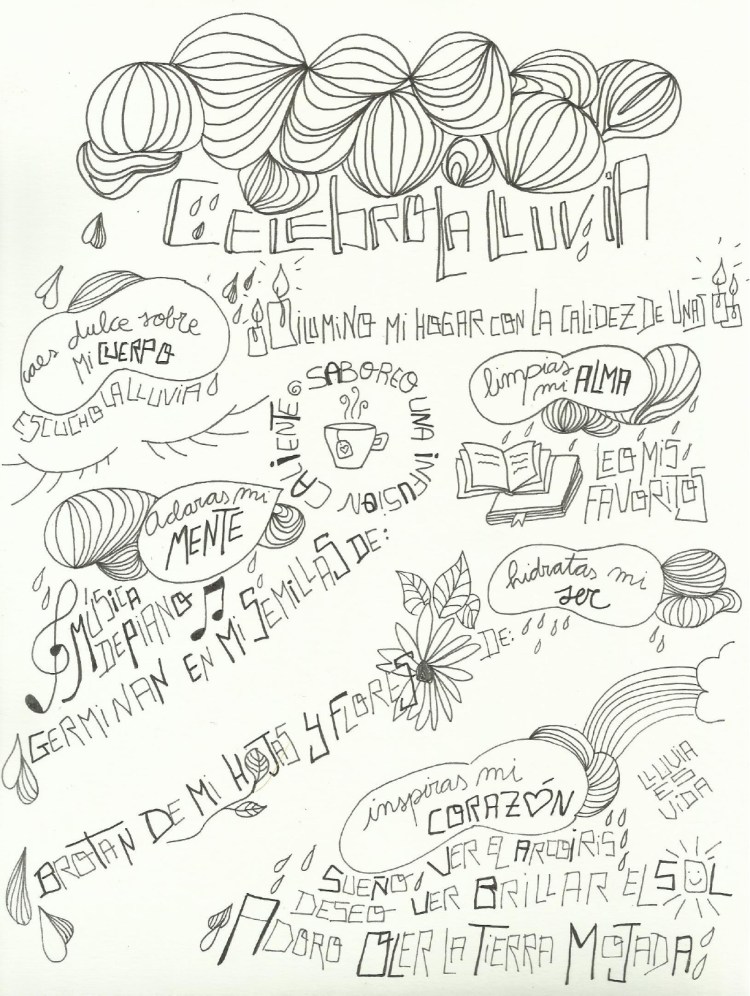 CELEBRO LA LLUViA
caes dulce sobre
mi CUERPO
ILUMINO MI HOGAR CON LA CALIDEZ DE UNAS
ESCUCHO LA LLUViA
SABOREO UNA INFUSiON CALiENTE
limpias
mi ALMA
LEO MIS
FAVORITOS
aclaras mi
MENTE
MÚSiCA
DE PiANO
hidratas mi
ser
GERMINAN EN MI SEMILLAS DE:
BROTAN DE MI HOJAS Y FLORES DE:
inspiras mi
CORAZÓN
LLUViA
ES
ViDA
SUEÑO VER EL ARCOiRiS
DESEO VER BRILLAR EL SOL
ADORO OLER LA TiERRA MOJADA